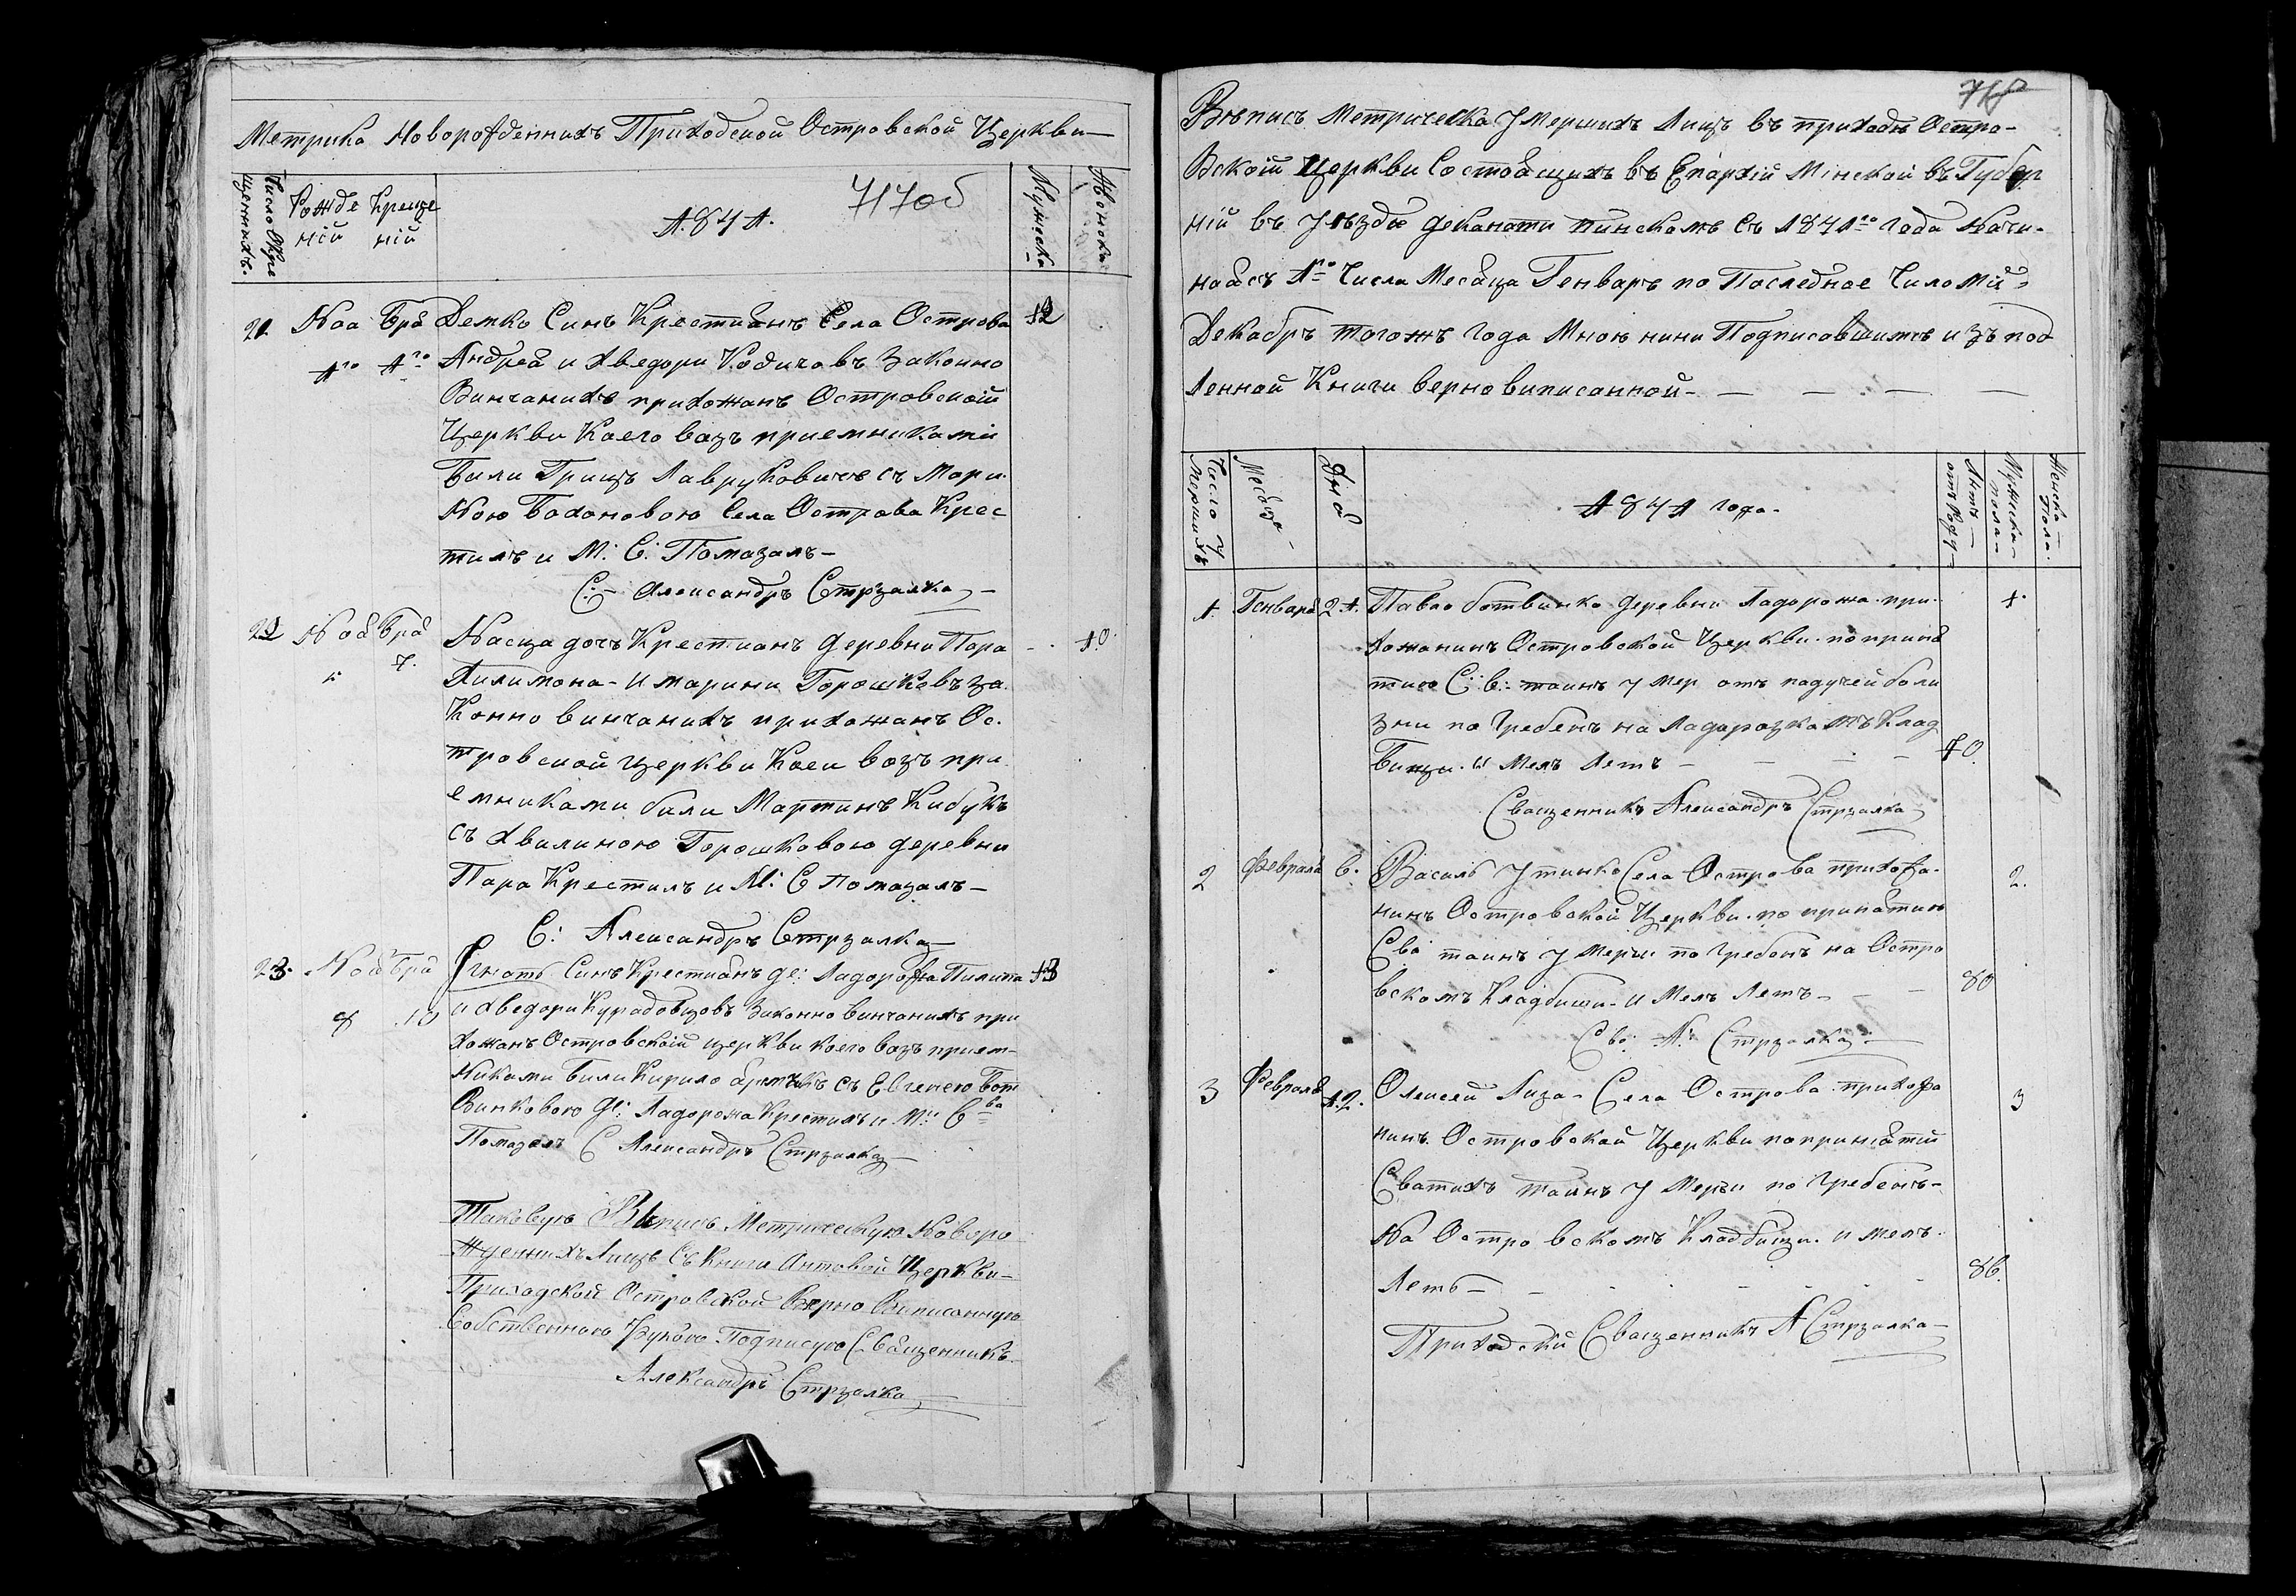 Метрика Новорожденнихъ Приходской Островской Церкви
Число Окре
щеннихъ.
Рожде
ній
Креще
ній
1841.
717об
Мужеска
Женска
21. Ноа Бра Демко Синъ Крестианъ Села Острова 12
1го 1го Андреа и Хведори Кодичовъ Законно
Винчанихъ прихожанъ Островской
Церкви Коего возъ приемниками
Били Грицъ Лаврукович съ Мари
Ною Бохоновою Села Острова Крес
тилъ и М: С: Помазалъ
С: Александръ Стрзалка
22 Ноа Бра Насца дочъ Крестианъ деревни Пара 10.
7. Хилимона и Марини Горошковъ за
Конно винчанихъ прихожанъ Ос.
тровской Церкви Коеи возъ при
емниками били Мартинъ Кибукъ
съ Хвалиною Горошковою деревни
Пара Крестилъ и М: С помазалъ
С: Александръ Стрзалка
23. Ноа Бра Гнатъ Синъ Крестианъ де: Ладорожа Пилипа 13
8 10 и Хведори Курадовцовъ Законно винчанихъ при
хожанъ Островской церкви коего возъ прием
никами били Кирило съ Евгенею Бот
Винковою де: Ладорожа Крестилъ и М: Сва
Помазалъ С Александръ Стрзалка
Таковую Випись Метрическую Новоро
жденнихъ Лицъ Съ Книги Актовой Церкви
Приходской Островской Верно Виписанную
Собственною Рукою Подписую Священникъ
Александръ Стрзалка
718
Випись Метрическа Умершихъ Лицъ въ приходе Остро-
Вской Церкви Состоащихъ въ Епархій Мінской въ Губер
ній въ Уезде деканати Пинскомъ Съ 1841го года Начи-
наасъ 1го Числа Месаца Генваръ по Последное Чило Мца
Декабръ тогожъ года Мною нини Подписавшимъ изъ под
Ленной Книги верно виписанной
Число У
мершихъ
Месаца
Дна
1841 года.
Летъ
отъ Родд
Мужеска
пола
Женска
Пола.
1. Генвара 21. Павло Ботвинко деревни Ладорожа при- 1.
хожанинъ Островской Церкви по прина
тию С: С: таинъ Умер отъ падучей боли
зни погребенъ на Ладорозкомъ Клад
Бищи и Мелъ Летъ 70.
Сващенникъ Александръ Стрзалка
2 Феврала 6. Василь Утинко Села Острова прихожа- 2.
нинъ Островской Церкви по принатию
Сва таинъ Умеръи погребенъ на Остро
вскомъ Кладбищи и Мелъ Летъ 80
Сва: А: Стрзалка
3 Феврала 12. Олексей Лиза Села Острова прихожа 3
нинъ Островской Церкви попринатій
Сватихъ таинъ Умеръи погребенъ
На Островскомъ Кладбищи и мелъ
Летъ 86.
Приходскій Сващенникъ А Стрзалка